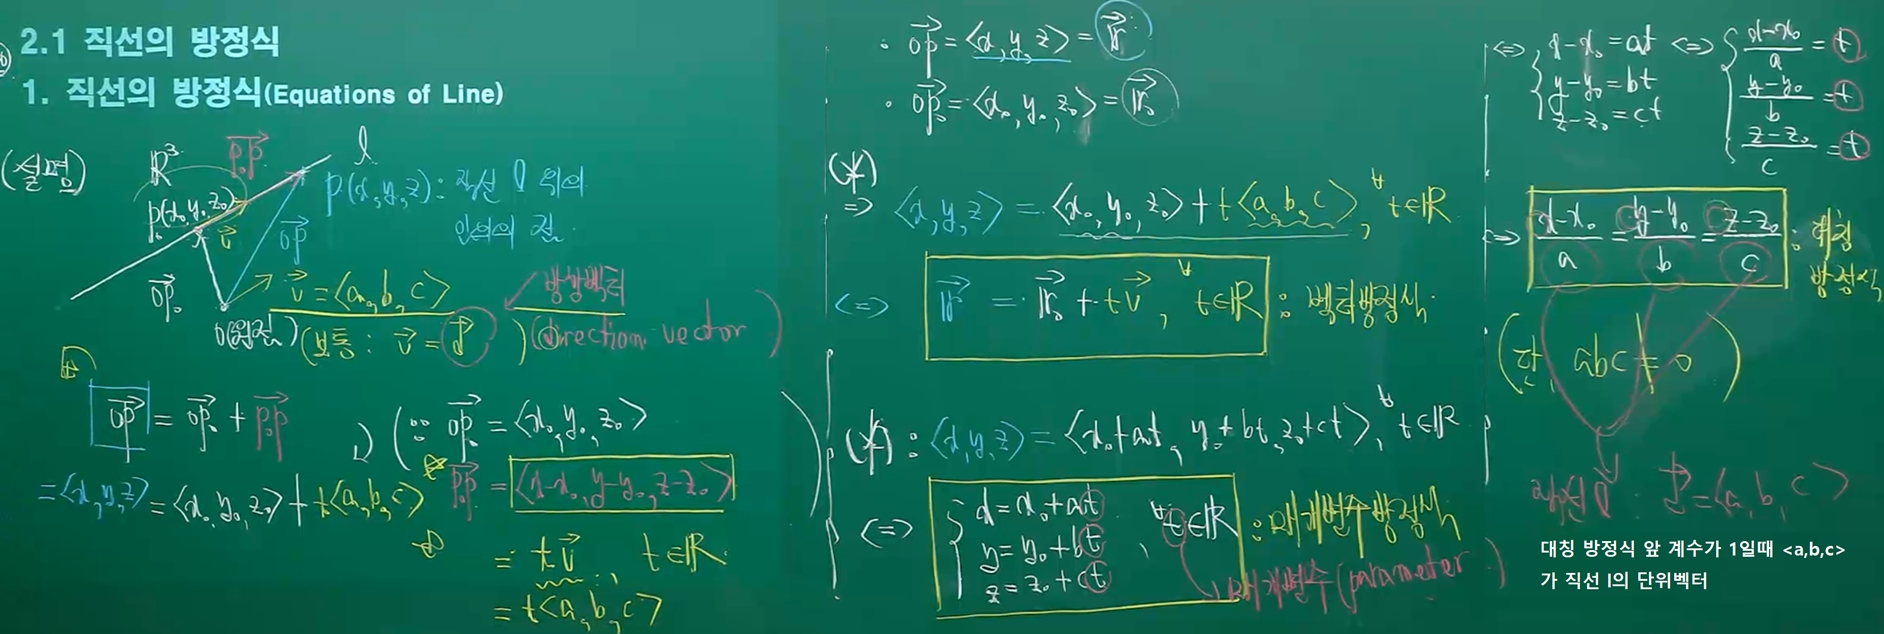 2.1 직선의 방정식
1. 직선의 방정식(Equations of Line)
(설명)
R³
P₀P→
l
P(x₀, y₀, z₀)
v→
OP→
P(x, y, z) : 직선 l 위의
임의의 점.
OP₀→
O(원점)
v→ = <a, b, c>
방향벡터
(보통 : v→ = d→)
(direction vector)
OP→ = OP₀→ + P₀P→
(∵ OP₀→ = <x₀, y₀, z₀>
P₀P→ = <x-x₀, y-y₀, z-z₀>
= <x, y, z> = <x₀, y₀, z₀> + t<a, b, c>
= tv→, t∈R.
= t<a, b, c>
· OP→ = <x, y, z> = r→
· OP₀→ = <x₀, y₀, z₀> = r₀→
(*)
⇒ <x, y, z> = <x₀, y₀, z₀> + t<a, b, c>, ∀t∈R
⇔ r→ = r₀→ + tv→, ∀t∈R : 벡터방정식
(*) : <x, y, z> = <x₀+at, y₀+bt, z₀+ct>, ∀t∈R
⇔ { x = x₀+at
y = y₀+bt
z = z₀+ct
, ∀t∈R : 매개변수방정식
매개변수(parameter)
⇔ { x-x₀ = at
y-y₀ = bt
z-z₀ = ct
⇔ { (x-x₀)/a = t
(y-y₀)/b = t
(z-z₀)/c = t
⇔ (x-x₀)/a = (y-y₀)/b = (z-z₀)/c : 대칭
방정식
(단, abc ≠ 0)
직선 l : d→ = <a, b, c>
대칭 방정식 앞 계수가 1일때 <a,b,c>
가 직선 l의 단위벡터